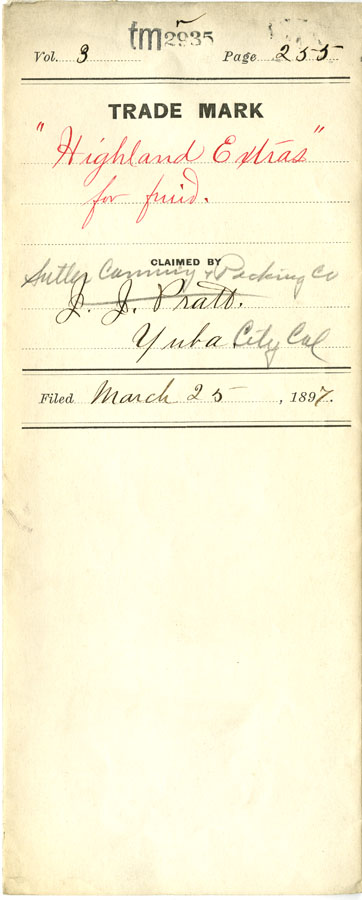 tm 2935
Vol. 3 Page 255
TRADE MARK
"Highland Extras"
for fruid.
CLAIMED BY
Sutter Canning & Packing Co
J. J. Pratt.
Yuba City Cal
Filed March 25, 1897.